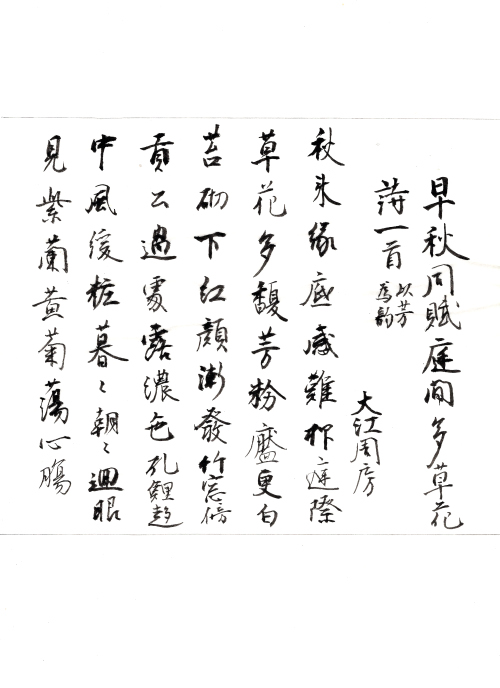 早秋同賦庭閒多草花
詩一首 以芳為韵
大江周房
秋来緣底感難抑庭際
草花多馥芳粉靨更白
苔砌下紅顔漸發竹窓傍
貢公過處露濃色孔鯉趍
中風緩粧暮〻朝〻廻眼
見紫蘭黄菊蕩心腸